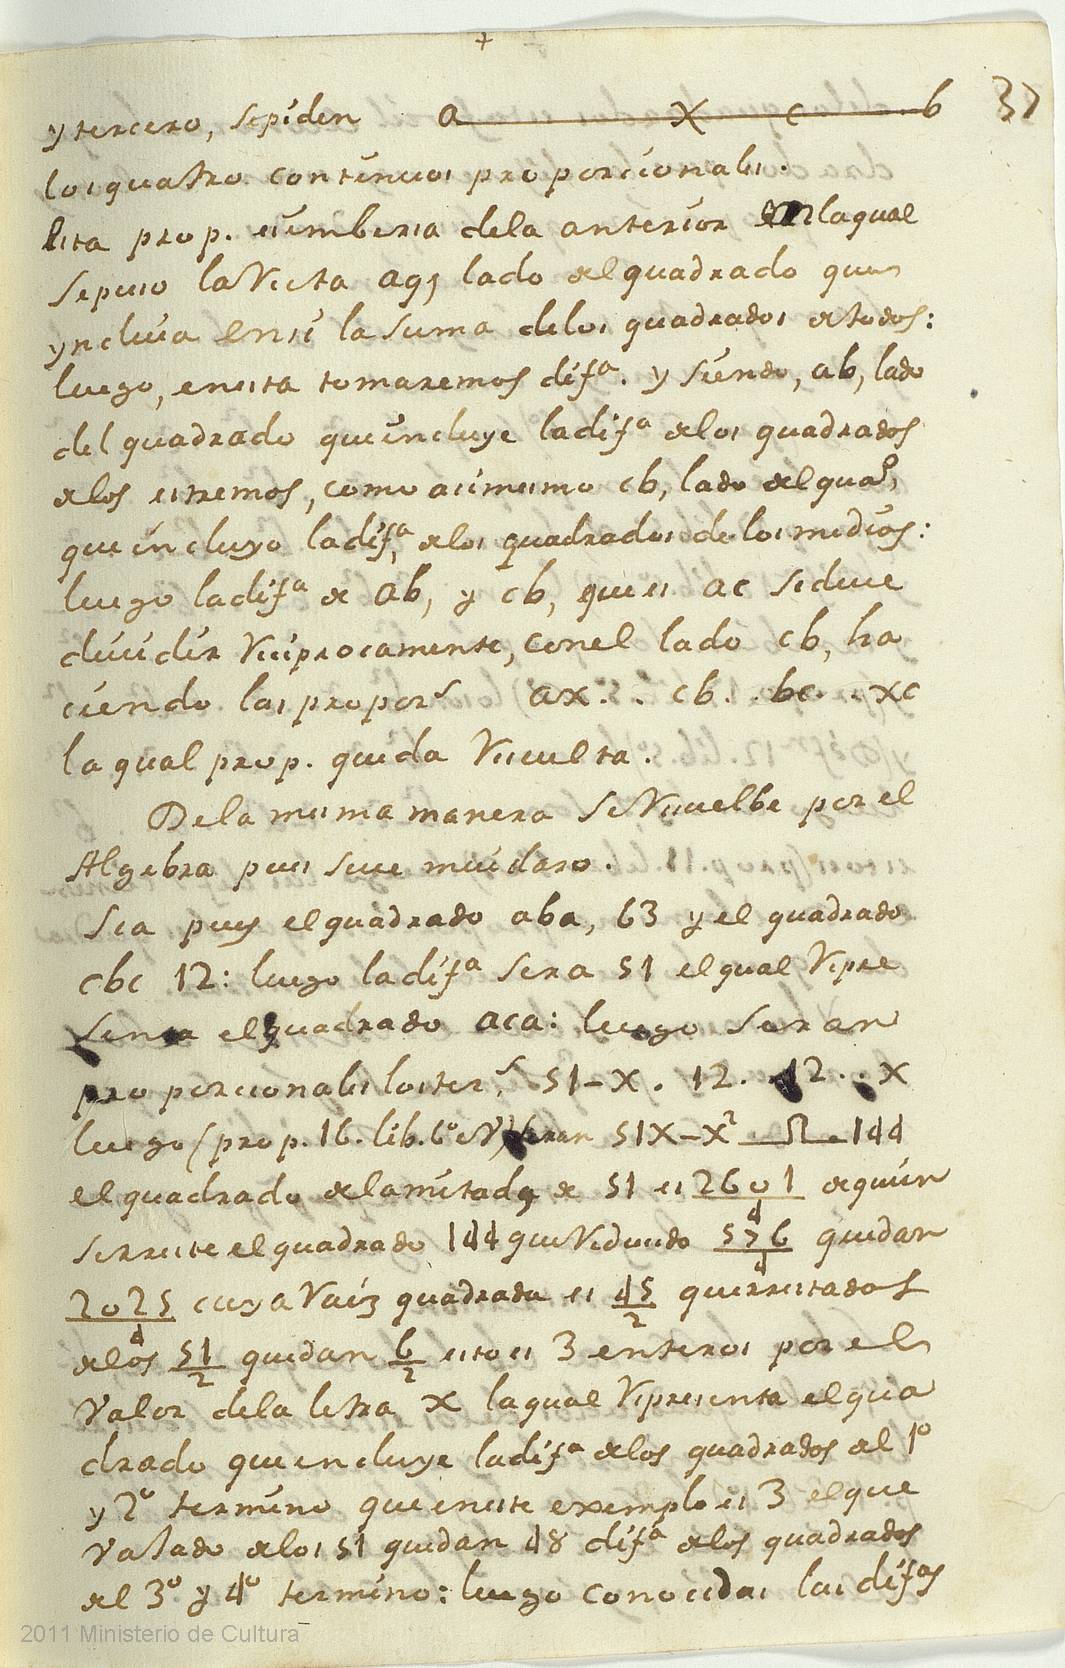 +
37
y tercero, sepiden a x c b
los quatro continuos proporcionales.
Esta prop. es imbersa dela anterior en laqual
sepuso la Recta ag, lado del quadrado que
yncluia ensi la suma delos quadrados de todos:
luego, enesta tomaremos difª. y siendo, ab, lado
del quadrado que incluye ladifª delos quadrados
delos estremos, como asimismo cb, lado del quadº,
que incluyo ladifª, delos quadrados de los medios:
luego ladifª de ab, y cb, que es ac sedeve
dividir Reciprocamente, conel lado cb, ha
ciendo las proporˢ ax . . cb . . bc . . xc
la qual prop. queda Resuelta.
Dela misma manera se Resuelbe por el
Algebra pues sere mui claro.
Sea pues el quadrado aba, 63 y el quadrado
cbc 12: luego ladifª sera 51 el qual Repre
senta el quadrado aca: luego seran
proporcionales los terˢ. 51-x . 12 . 12 . . x
luego (prop. 16. lib. 6º) seran 51x-x² 144
el quadrado dela mitad de 51 es 2601/4 de quien
serreste el quadrado 144 que Reducido 576/4 quedan
2025/4 cuya Raiz quadrada es 45/2 que rrestados
delos 51/2 quedan 6/2 esto es 3 enteros por el
Valor dela letra x laqual Representa el qua
drado que incluye ladifª delos quadrados del 1º
y 2º termino que eneste exemplo es 3 el que
Vajado delos 51 quedan 48 difª delos quadrados
del 3º y 4º termino: luego conocidas las difªs
2011 Ministerio de Cultura